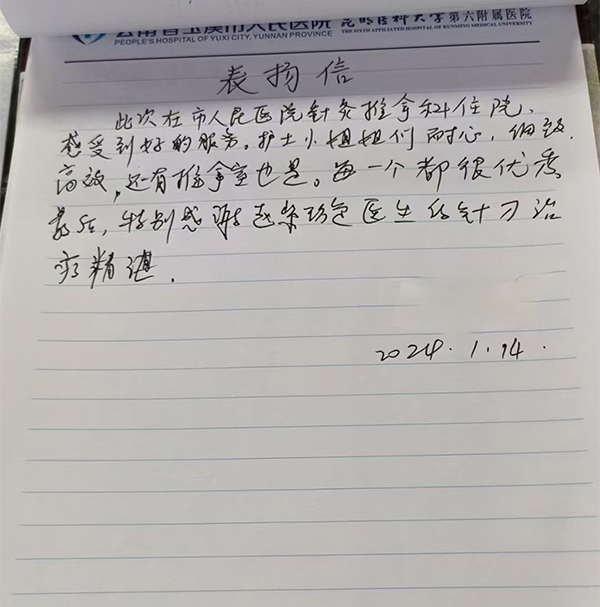 云南省玉溪市人民医院 昆明医科大学第六附属医院
PEOPLE'S HOSPITAL OF YUXI CITY, YUNNAN PROVINCE THE SIXTH AFFILIATED HOSPITAL OF KUNMING MEDICAL UNIVERSITY
表扬信
此次在市人民医院针灸推拿科住院、
感受到好的服务。护士小姐姐们耐心,细致.
高效,还有推拿室也是。每一个都很优秀
最后,特别感谢赵 医生的针刀治
疗精湛.
2024.1.14.